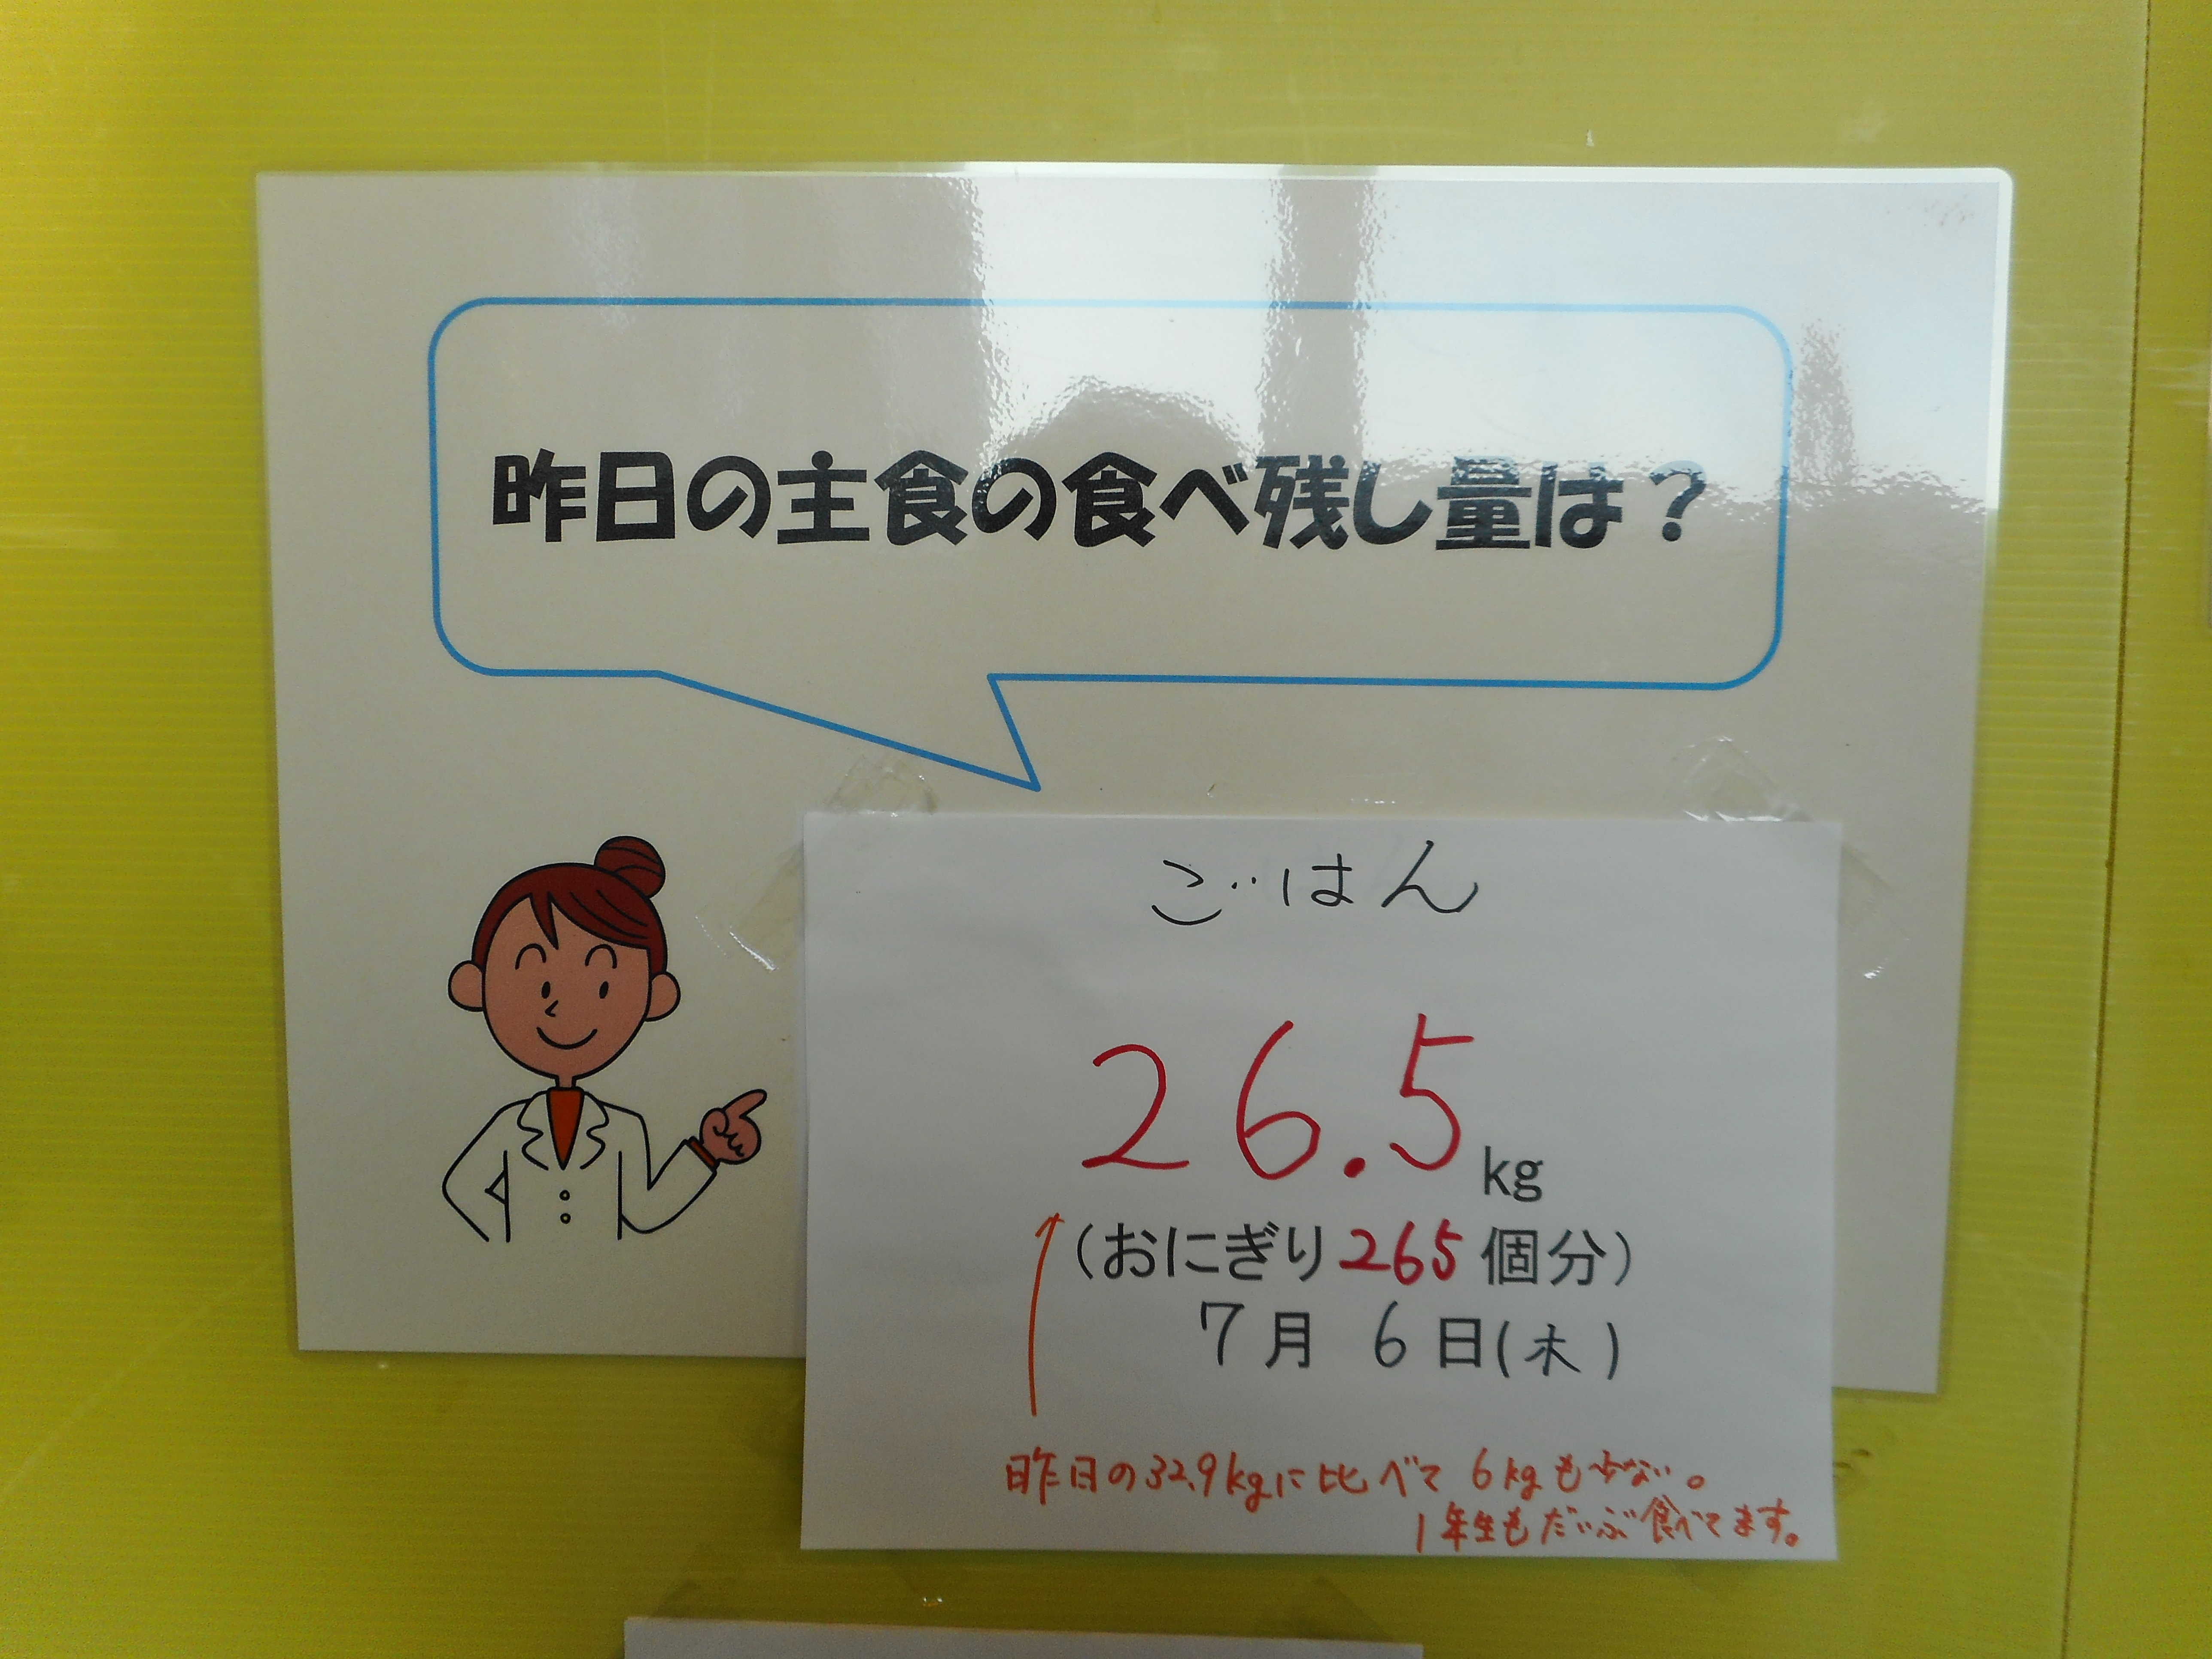 昨日の主食の食べ残し量は？
ごはん
26.5kg
（おにぎり265個分）
7月 6日(木)
昨日の32.9kgに比べて6kgも少ない。
1年生もだいぶ食べてます。